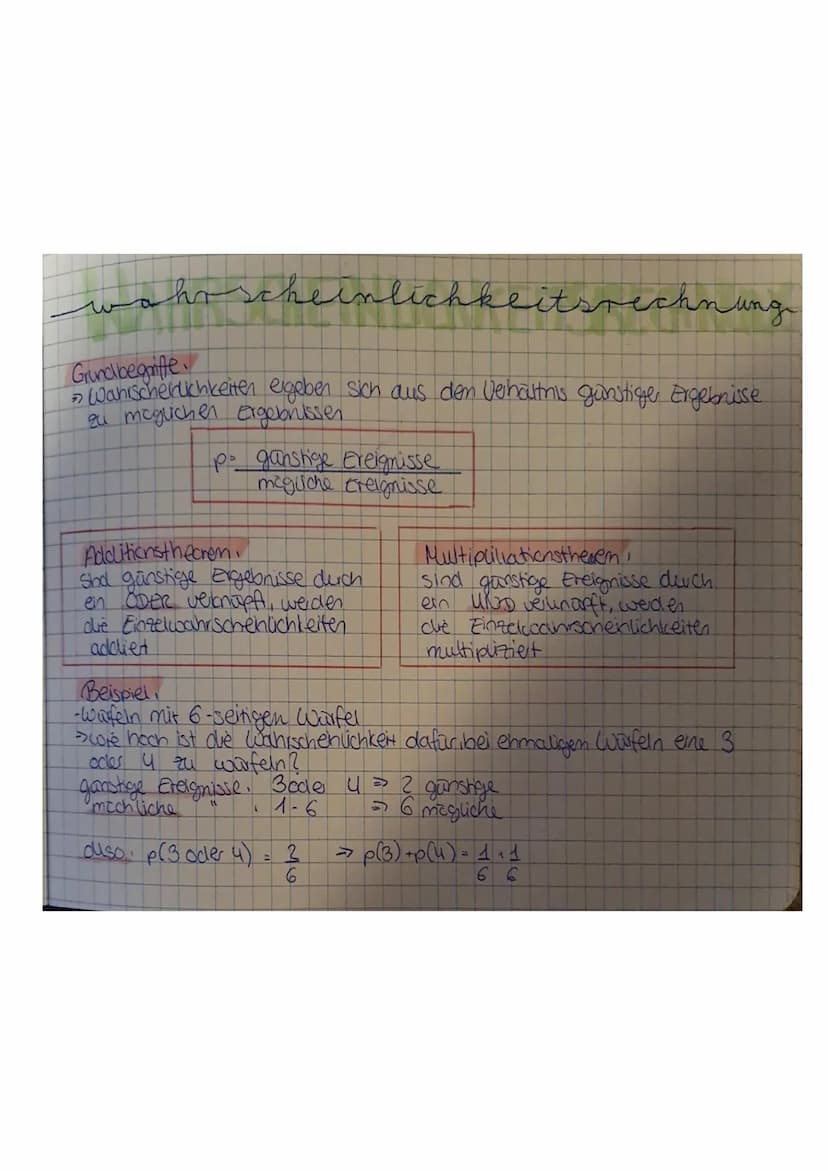 wahrscheinlichkeitsrechnung
Grundbegriffe:
⇒ Wahrscheinlichkeiten ergeben sich aus dem Verhältnis günstiger Ergebnisse
zu möglichen Ergebnissen
p= günstige Ereignisse
mögliche Ereignisse
Additionstheorem:
sind günstige Ergebnisse durch
ein ODER verknüpft, werden
die Einzelwahrscheinlichkeiten
addiert
Multiplikationstheorem:
sind günstige Ereignisse durch
ein UND verknüpft, werden
die Einzelwahrscheinlichkeiten
multipliziert
Beispiel:
-Würfeln mit 6-seitigen Würfel
→ Wie hoch ist die Wahrscheinlichkeit dafür, bei einmaligem Würfeln eine 3
oder 4 zu würfeln?
günstige Ereignisse: 3 oder 4 ⇒ 2 günstige
möchliche " : 1-6 ⇒ 6 mögliche
also: p(3 oder 4) = 2/6 ⇒ p(3)+p(4) = 1/6 + 1/6